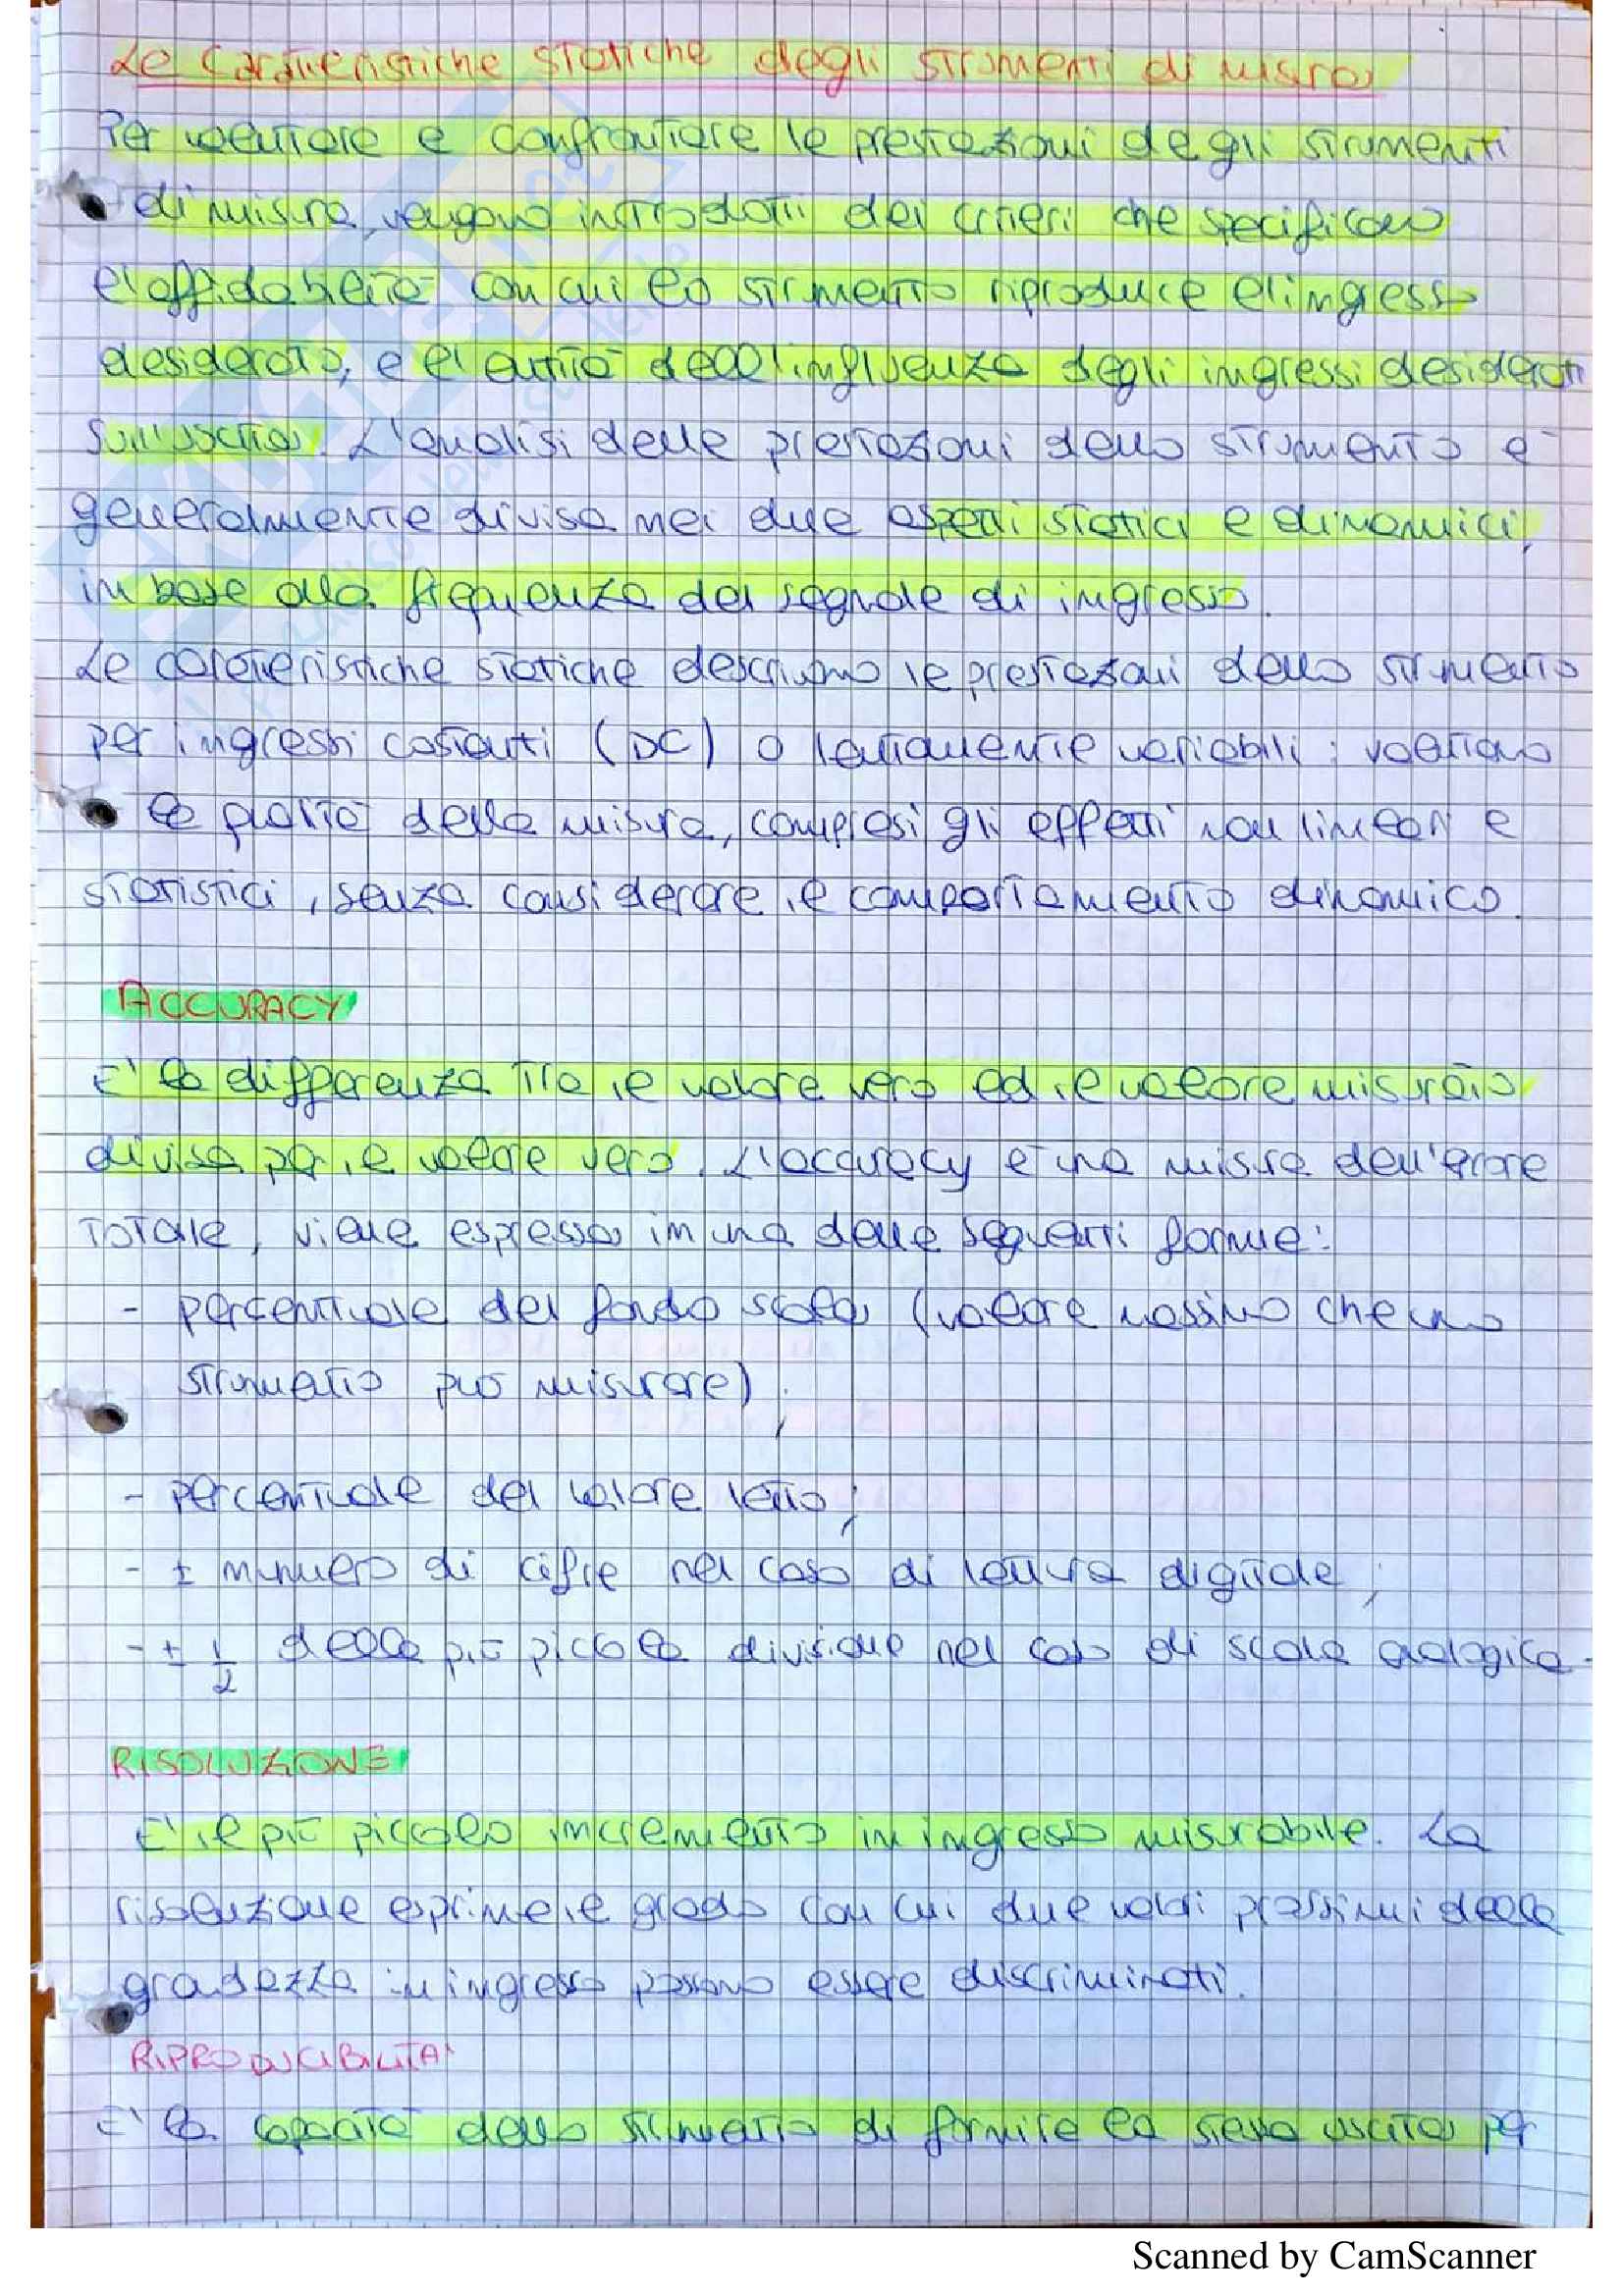 Le caratteristiche statiche degli strumenti di misura
Per valutare e confrontare le prestazioni degli strumenti
di misura, vengono introdotti dei criteri che specificano
l'affidabilità con cui lo strumento riproduce l'ingresso
desiderato, e l'entità dell'influenza degli ingressi desiderati
sull'uscita. L'analisi delle prestazioni dello strumento è
generalmente divisa nei due aspetti statici e dinamici,
in base alla frequenza del segnale di ingresso.
Le caratteristiche statiche descrivono le prestazioni dello strumento
per ingressi costanti (DC) o lentamente variabili: valutano
la qualità della misura, compresi gli effetti non lineari e
statistici, senza considerare il comportamento dinamico.
ACCURACY
E' la differenza tra il valore vero ed il valore misurato
divisa per il valore vero. L'accuracy è una misura dell'errore
totale, viene espressa in una delle seguenti forme:
- percentuale del fondo scala (valore massimo che uno
strumento può misurare);
- percentuale del valore letto;
- ± numero di cifre nel caso di lettura digitale;
- ± 1/2 della più piccola divisione nel caso di scala analogica.
RISOLUZIONE
E' il più piccolo incremento in ingresso misurabile. La
risoluzione esprime il grado con cui due valori prossimi della
grandezza in ingresso possono essere discriminati.
RIPRODUCIBILITA'
E' la capacità dello strumento di fornire la stessa uscita per
Scanned by CamScanner